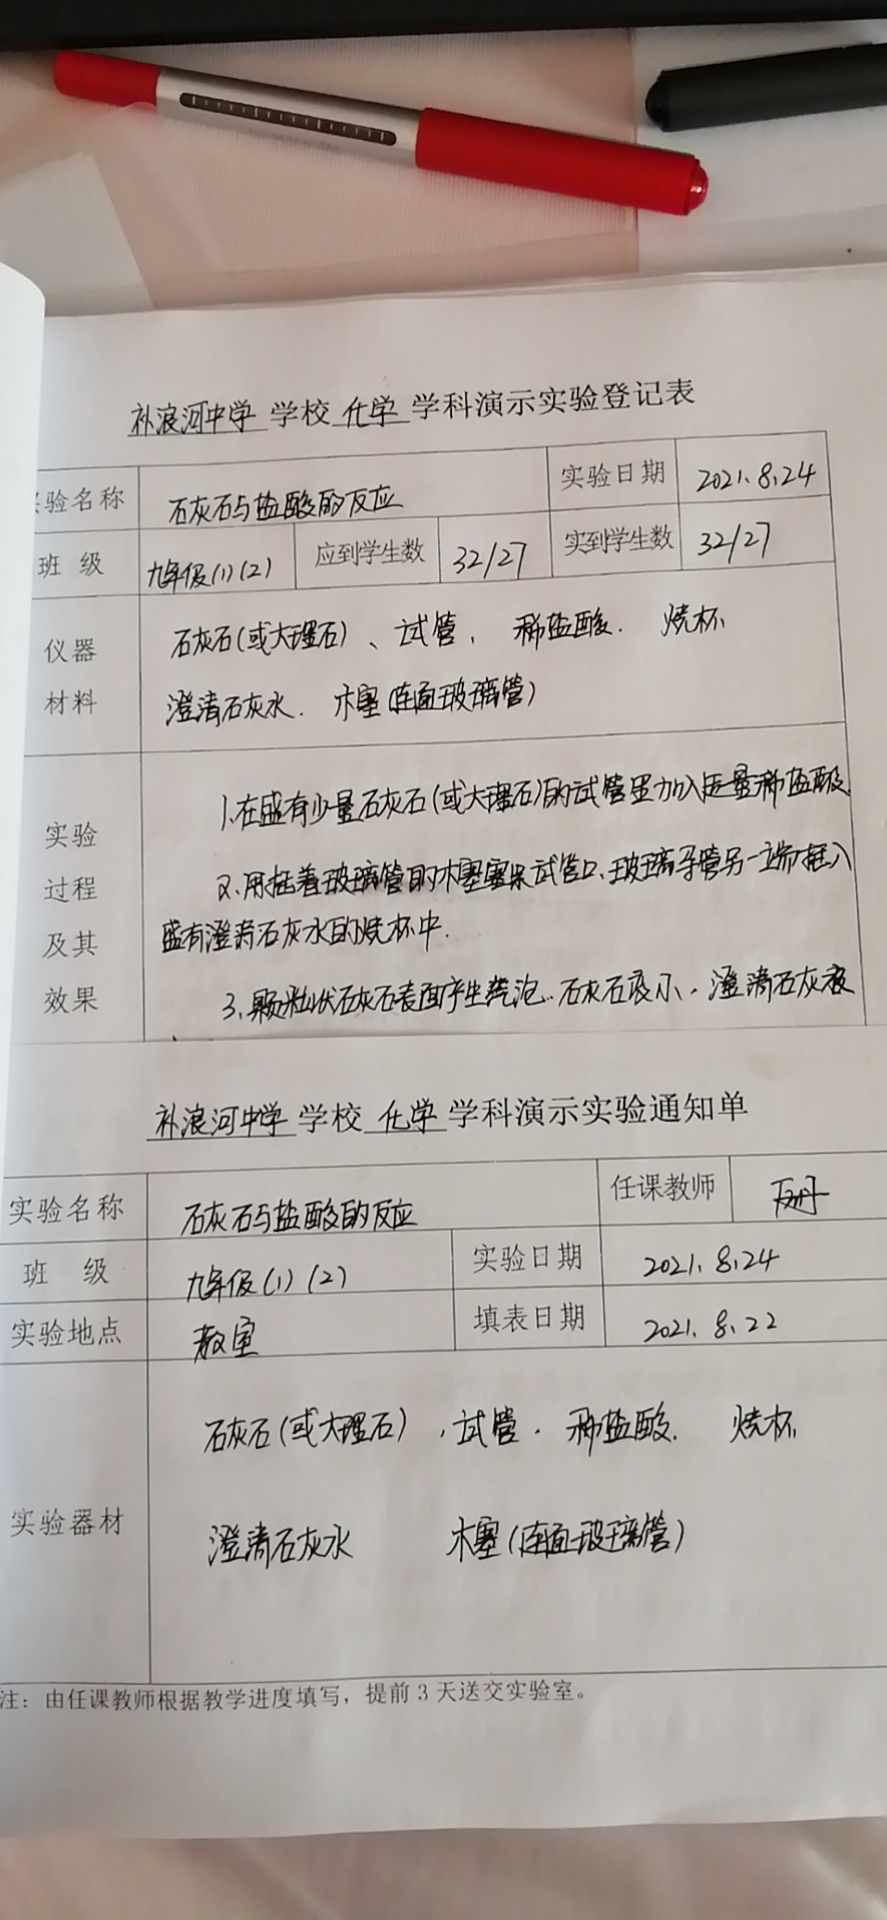 补浪河中学 学校 化学 学科演示实验登记表
实验名称 石灰石与盐酸的反应 实验日期 2021.8.24
班 级 九年级(1)(2) 应到学生数 32/27 实到学生数 32/27
仪器 石灰石(或大理石)、试管、稀盐酸. 烧杯
材料 澄清石灰水. 木塞(连面玻璃管)
1.在盛有少量石灰石(或大理石)的试管里加入适量稀盐酸
实验
过程 2.用插着玻璃管的木塞塞住试管口、玻璃导管另一端插入
及其 盛有澄清石灰水的烧杯中.
效果 3.颗粒状石灰石表面产生气泡.石灰石变小、澄清石灰液
补浪河中学 学校 化学 学科演示实验通知单
实验名称 石灰石与盐酸的反应 任课教师
班 级 九年级(1)(2) 实验日期 2021.8.24
实验地点 教室 填表日期 2021.8.22
石灰石(或大理石),试管. 稀盐酸. 烧杯
实验器材
澄清石灰水 木塞(连面玻璃管)
注：由任课教师根据教学进度填写，提前3天送交实验室。